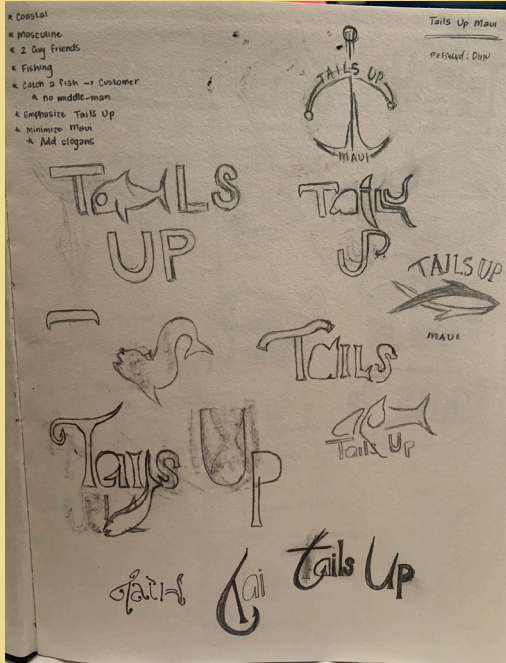 * Coastal
* Masculine
* 2 Guy friends
* Fishing
* Catch a fish -> Customer
* no middle-man
* Emphasize Tails Up
* Minimize Maui
* Add slogans
Tails Up Maui
TAILS UP
MAUI
TAILS
UP
Tails
UP
TAILS UP
MAUI
TAILS
Tails Up
UP
Tails Up
Tai
tails Up